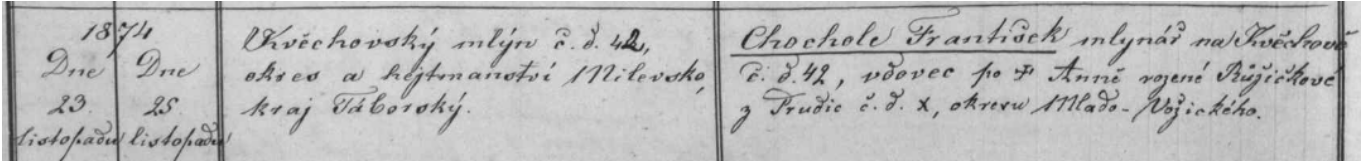 1874
Dne Dne
23. 25.
listopadu listopadu
Kvěchovský mlýn č. d. 42,
okres a hejtmanství Milevsko,
kraj Táborský.
Chochole František mlynář na Kvěchově
č. d. 42, vdovec po ☦ Anně rozené Růžičkové
z Prudic č. d. x, okresu Mlado-Vožického.